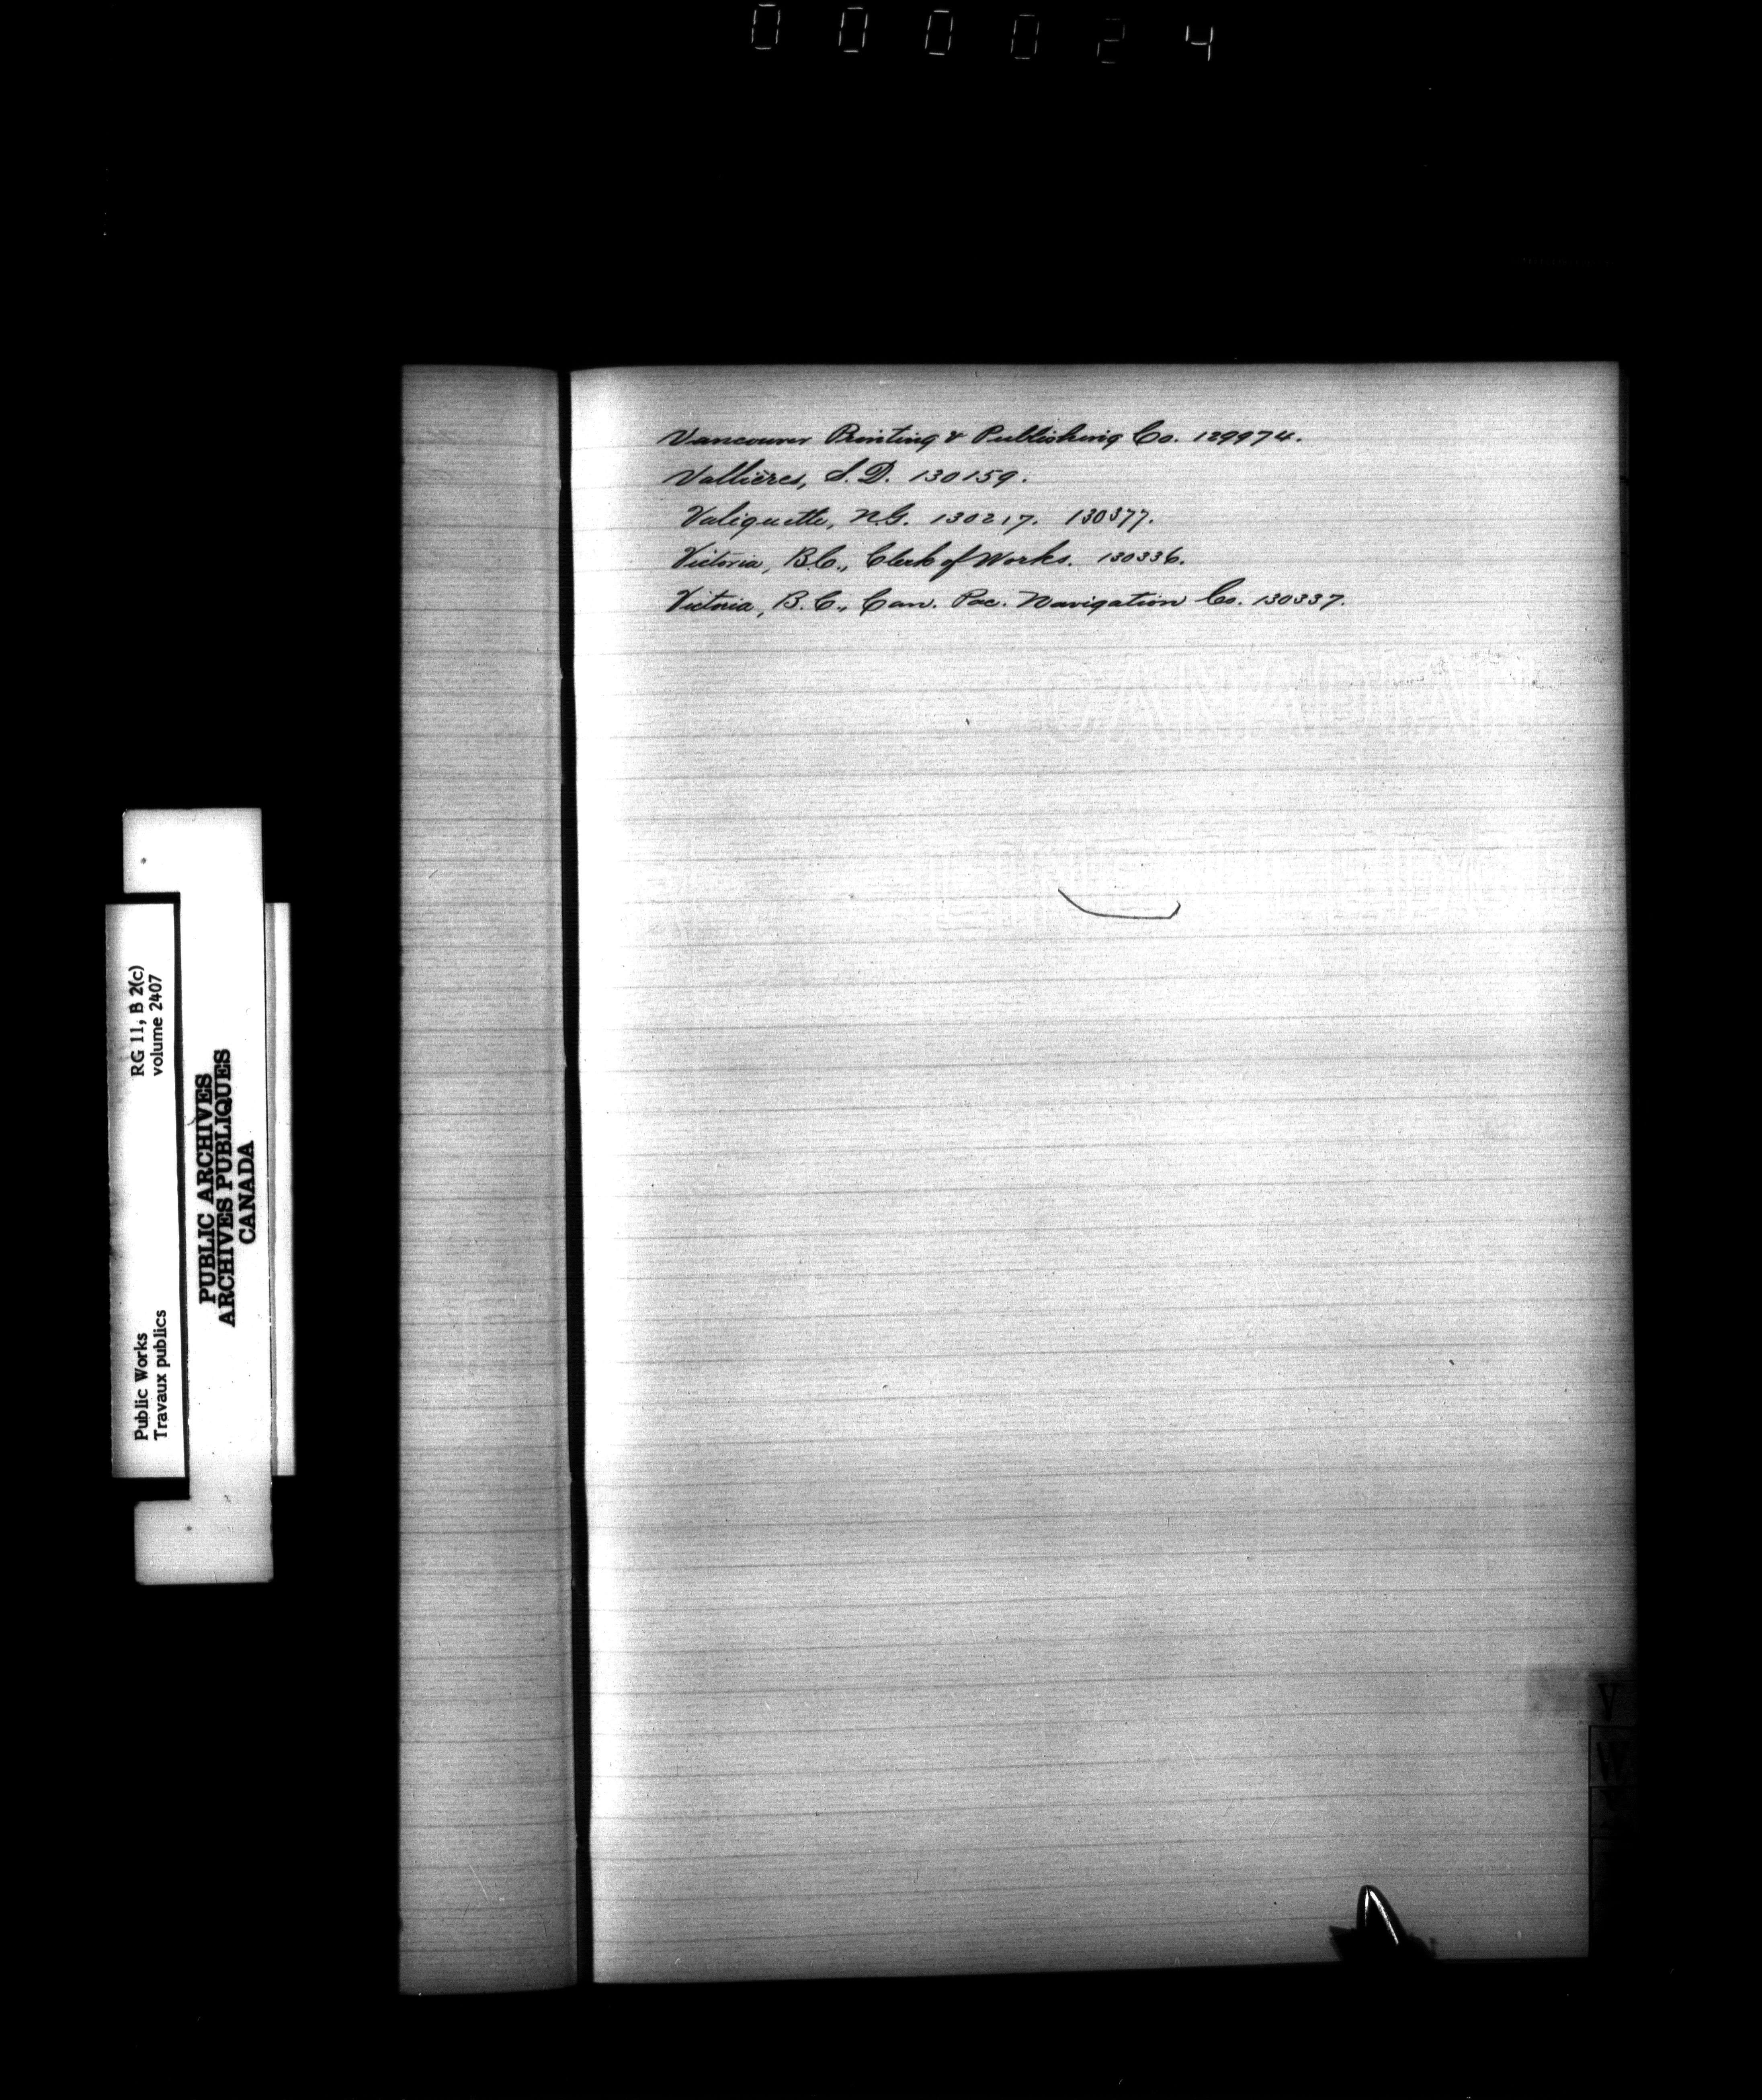 000024
Vancouver Printing & Publishing Co. 129974.
Vallières, S.D. 130159.
Valiquette, N.G. 130217. 130377.
Victoria, B.C., Clerk of Works. 130336.
Victoria, B.C., Can. Pac. Navigation Co. 130337.
RG 11, B 2(c)
volume 2407
Public Works
Travaux publics
PUBLIC ARCHIVES
ARCHIVES PUBLIQUES
CANADA
V
W